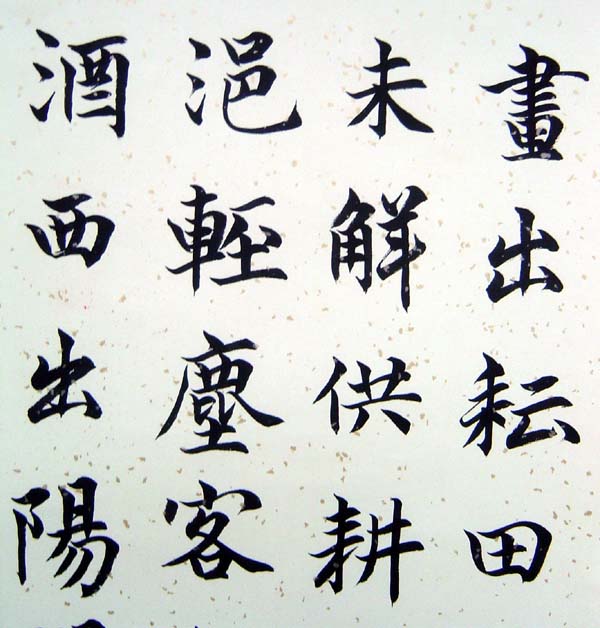 畫出耘田
未解供耕
浥輕塵客
酒西出陽